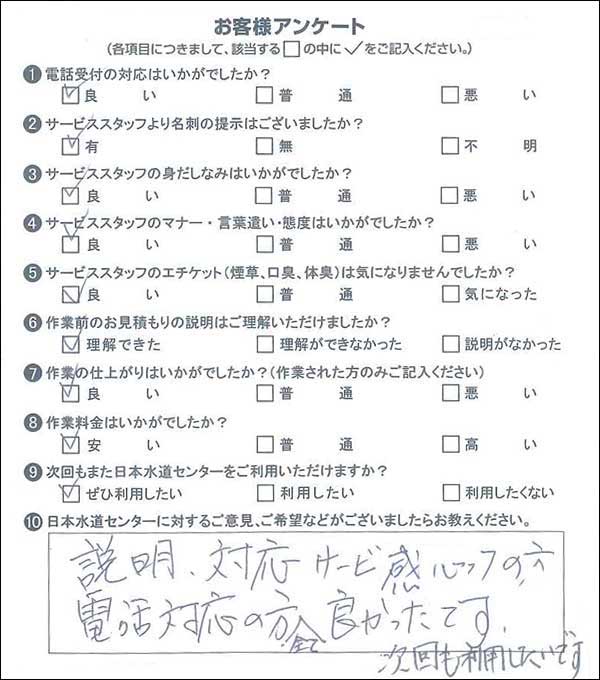 お客様アンケート
(各項目につきまして、該当する□の中に✓をご記入ください。)
❶ 電話受付の対応はいかがでしたか?
☑良い □普通 □悪い
❷ サービススタッフより名刺の提示はございましたか?
☑有 □無 □不明
❸ サービススタッフの身だしなみはいかがでしたか?
☑良い □普通 □悪い
❹ サービススタッフのマナー・言葉遣い・態度はいかがでしたか?
☑良い □普通 □悪い
❺ サービススタッフのエチケット(煙草、口臭、体臭)は気になりませんでしたか?
☑良い □普通 □気になった
❻ 作業前のお見積もりの説明はご理解いただけましたか?
☑理解できた □理解ができなかった □説明がなかった
❼ 作業の仕上がりはいかがでしたか?(作業された方のみご記入ください)
☑良い □普通 □悪い
❽ 作業料金はいかがでしたか?
☑安い □普通 □高い
❾ 次回もまた日本水道センターをご利用いただけますか?
☑ぜひ利用したい □利用したい □利用したくない
❿ 日本水道センターに対するご意見、ご希望などがございましたらお教えください。
説明、対応 サービ感 の方
電話対応の方全て良かったです。
次回も利用したいです